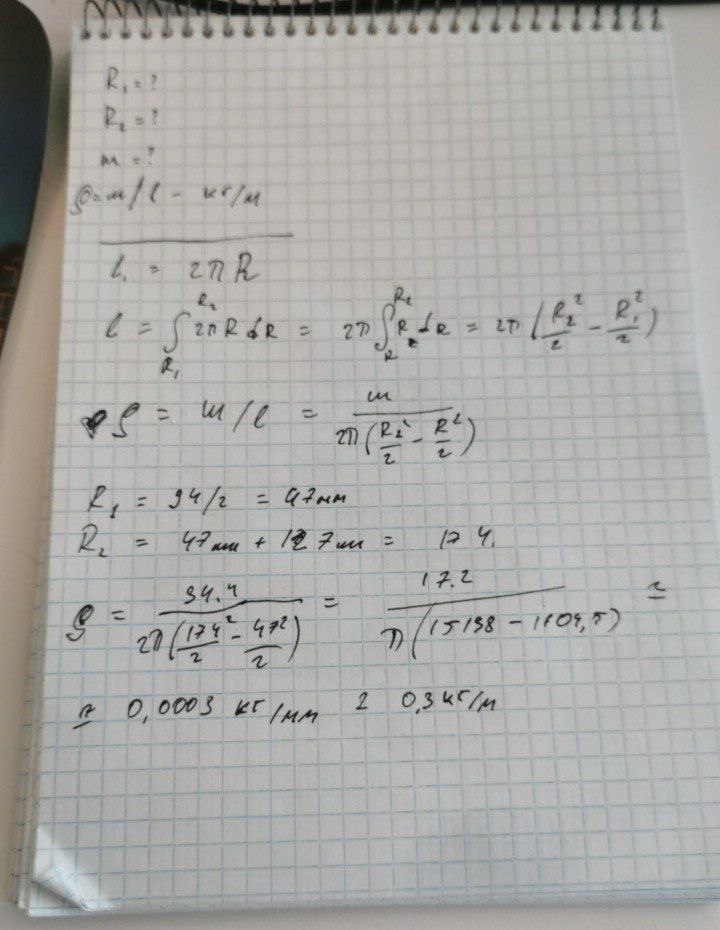 R₁ = ?
R₂ = ?
m = ?
ρ = m/l - кг/м
l₁ = 2πR
l = ∫_{R₁}^{R₂} 2πR dR = 2π ∫_{R}^{R₂} R dR = 2π (R₂²/2 - R₁²/2)
ρ = m/l = m / 2π(R₂²/2 - R²/2)
R₁ = 94/2 = 47мм
R₂ = 47мм + 127мм = 174.
ρ = 34.4 / 2π(174²/2 - 47²/2) = 17.2 / π(15138 - 1104,5) ≃
≃ 0,0003 кг/мм = 0,3 кг/м